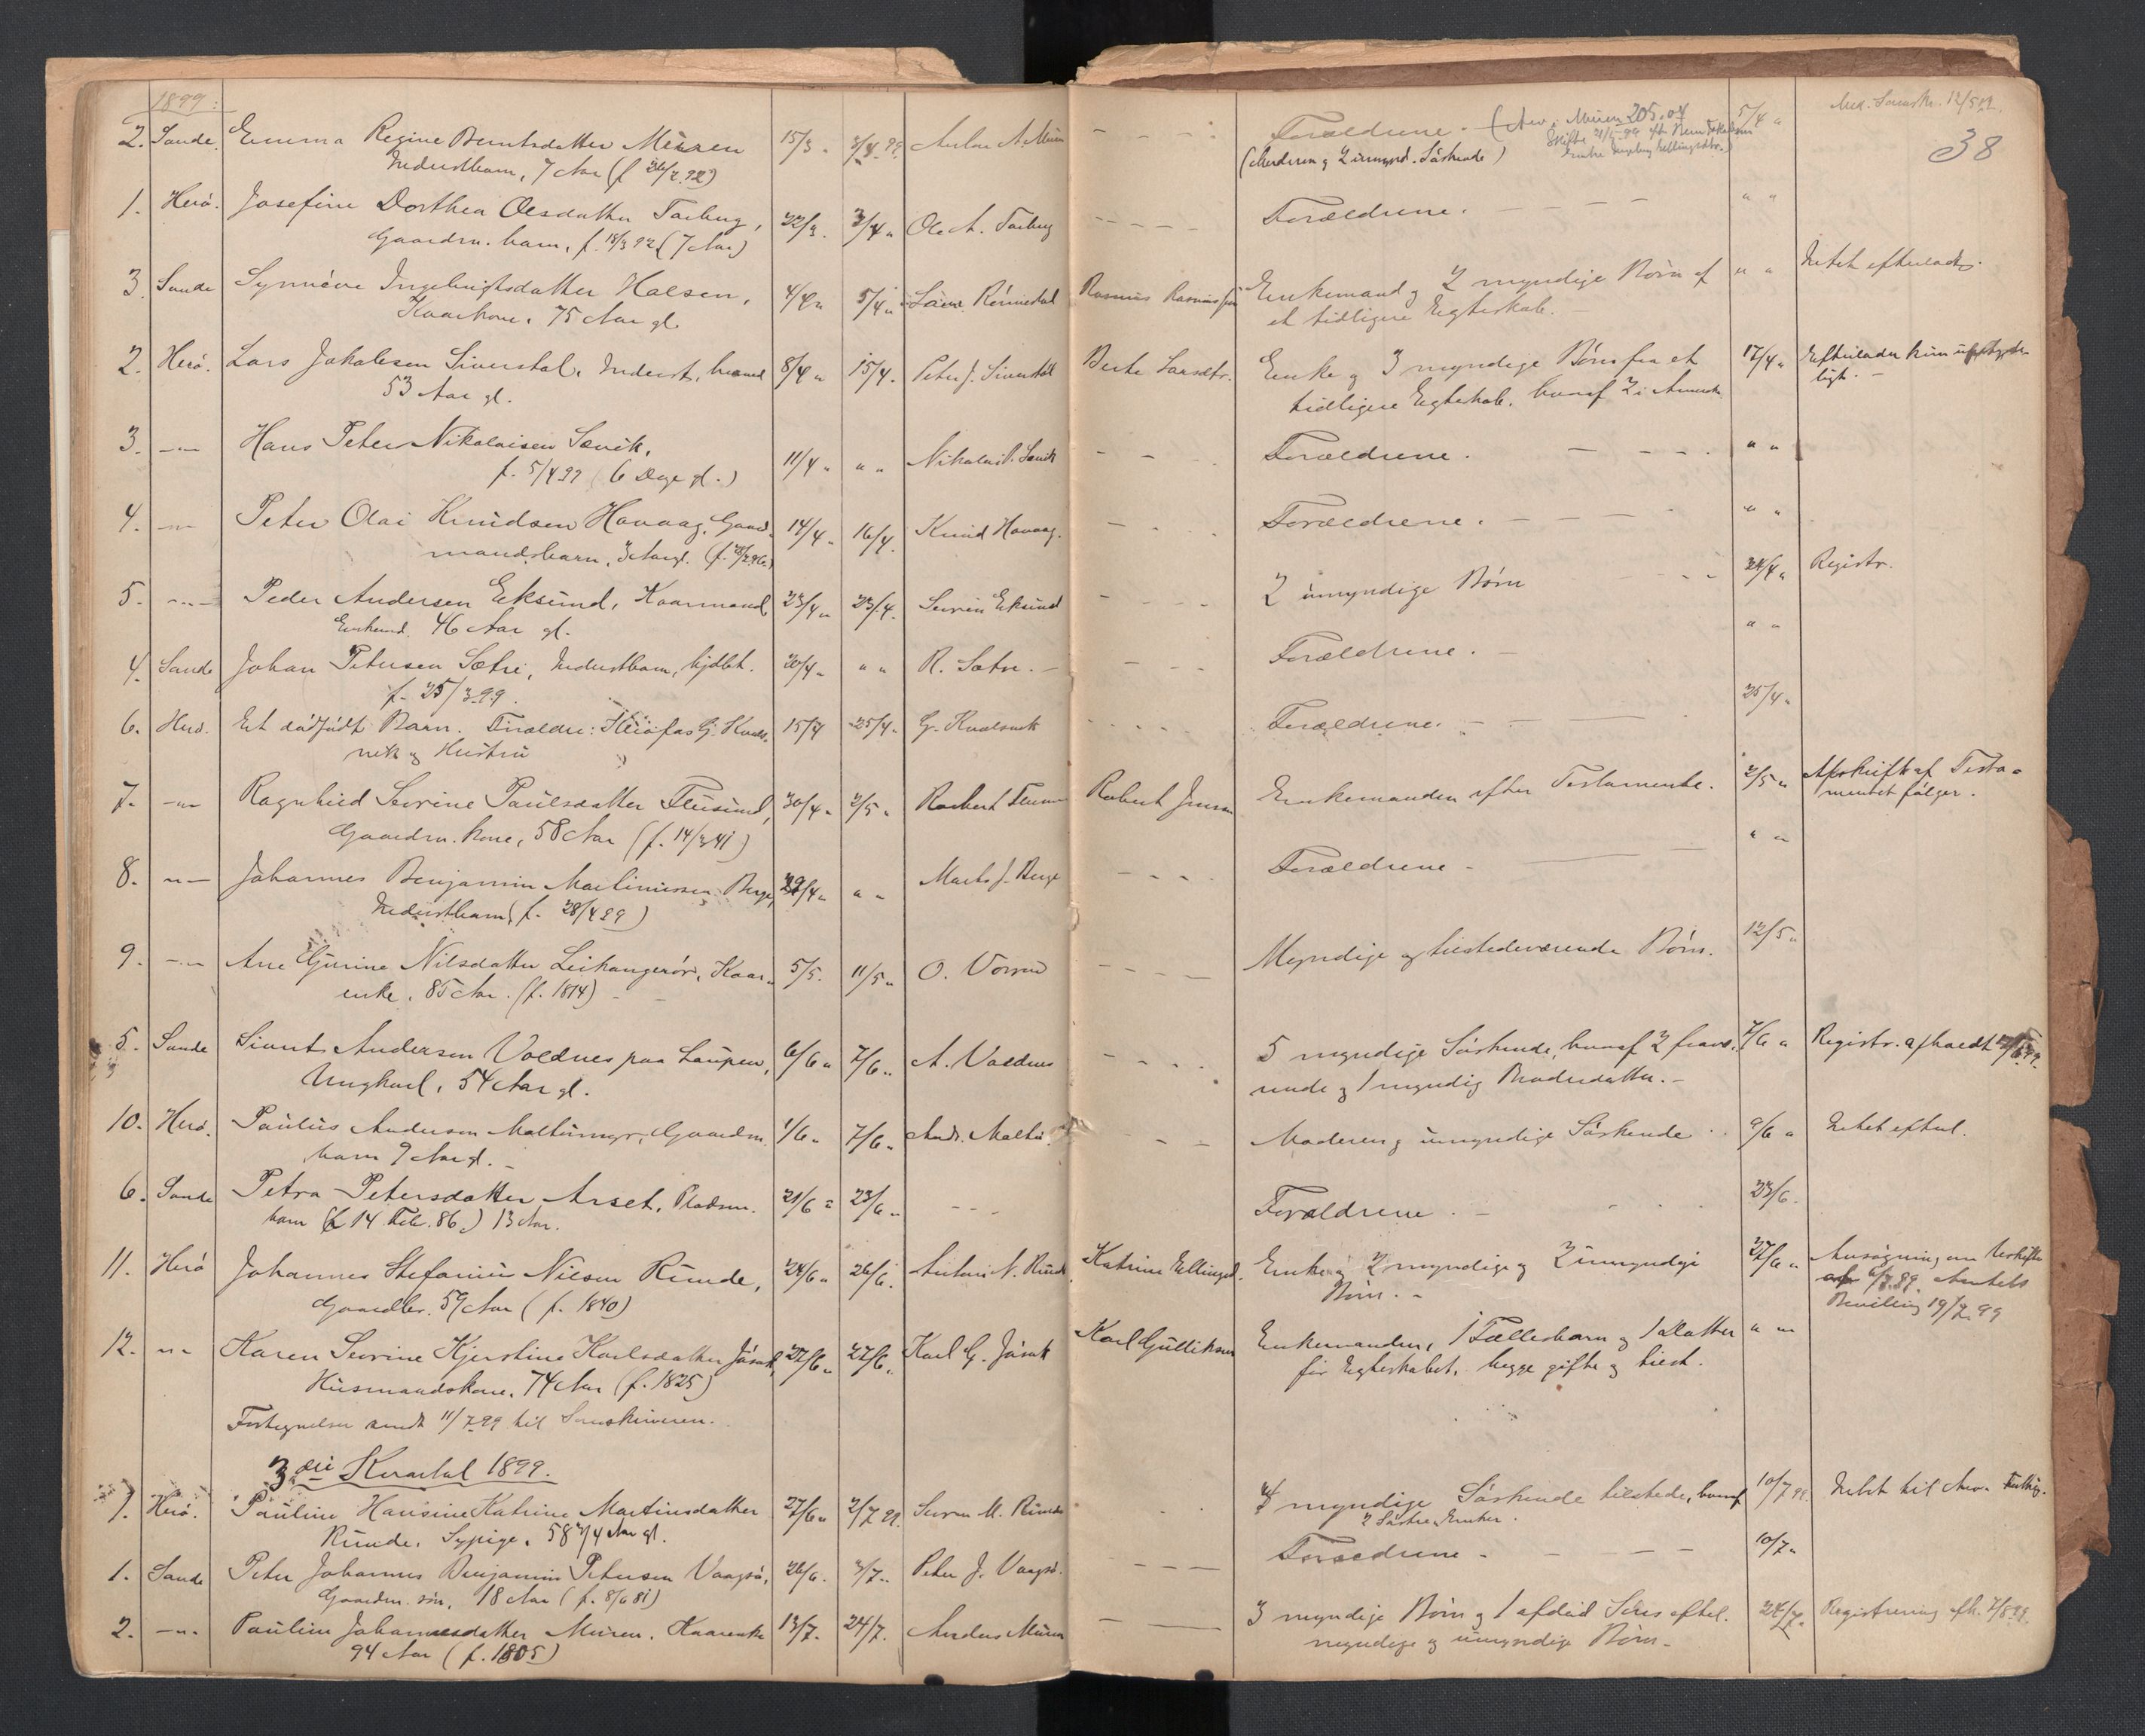 1899: Ind. Sorenskr. 12/5 99.
38
2. Sande. Emma Regine Berntsdatter Muren 15/3 " 3/4 99. Anton A. Muren - - - Forældrene. 5/4 "
Inderstbarn, 7 Aar (Moderen og 2 umynd. Søskende)
1. Herø. Josefine Dorthea Olsdatter Tarberg, 22/3. 3/4 " Ole A. Tarberg - - - - Forældrene. - - - " "
Gaardm. barn, f. 18/3 92 (7 Aar)
3. Sande Synnøve Ingebrigtsdatter Halsen, 4/4 " 5/4 " Rønnestad Rasmus Rasmussen Enkemand og 2 myndige Børn af " " Intet efterladt.
Kaarkone. 75 Aar gl. et tidligere Egteskab. -
2. Herø. Lars Jakobsen Siverstøl, Inderst, 8/4 " 15/4. Peter J. Siverstøl Berte Larsdtr. Enke og 3 myndige Børn fra et 17/4 " Efterlader kun ubetyde-
53 Aar gl. tidligere Egteskab, hvoraf 2 i Amerika ligt. -
3. -"- Hans Peter Nikolaisen Sævik, 11/4 " " " Nikolai P. Sævik - - - Forældrene. - - - " "
f. 5/4 99 (6 Dage gl.)
4. -"- Peter Olai Knudsen Havaag, Gaard- 14/4 " 16/4. Knud Havaag. - - - Forældrene. - - - " "
mandsbarn, 3 Aar gl.
5. -"- Peder Andersen Eksund, Kaarmand 23/4 " 23/4. Severin Eksund - - - 2 umyndige Børn - - 24/4 " Registr.
Enkemd. 46 Aar gl.
4. Sande Johan Petersen Sætre, Inderstbarn, hjdbt. 20/4 " " " R. Sætre. - - - Forældrene. - " "
f. 25/3 99.
6. Herø. Et dødfødt Barn. Forældre: Kleofas G. Kvals- 15/4 25/4 " G. Kvalsvik - - - Forældrene. - - 25/4 "
vik og Hustru
7. -"- Ragnhild Severine Paulsdatter Flusund, 30/4 " 2/5 " Robert Flusund Robert Jensen Enkemanden efter Testamente. 2/5 " Afskrift af Testa-
Gaardm. kone, 58 Aar (f. 14/3 41) mentet følger.
8. -"- Johannes Benjamin Martinussen Berge, 29/4 " " " Martin J. Berge - - - Forældrene - " "
Inderstbarn (f. 28/4 99)
9. -"- Ane Gjurine Nilsdatter Leikangerør, Kaar- 5/5. 11/5 " O. Vorren - - - Myndige og tilstedeværende Børn. 12/5 "
enke, 85 Aar. (f. 1814) -
5. Sande Sivert Andersen Voldnes paa Laupen, 6/6 " 7/6 " A. Voldnes - - - 5 myndige Søskende, hvoraf 2 fravæ- 7/6 " Registr. afholdt
Ungkarl, 54 Aar gl. rende og 1 myndig Broderdatter. -
10. Herø. Paulus Andersen Moltumyr, Gaardm. 1/6 " 7/6 " Andr. Moltu. - - Moderen og umyndige Søskende 9/6 " Intet efterl.
barn 9 Aar gl. -
6. Sande Petra Petersdatter Årset, Pladsm. 21/6 " 23/6 " - - - Forældrene. - 23/6.
barn (f. 14 Feb. 86.) 13 Aar.
11. Herø Johannes Stefanus Nilsen Runde, 24/6 " 26/6. Antoni N. Runde Katrine Ellingsd. Enke og 2 myndige og 2 umyndige 27/6 " Ansøgning om Uskifte
Gaardbr. 59 Aar (f. 1840) Børn. - 6/7 99. Amtets
Bevilling 19/7 99
12. -"- Karen Severine Kjerstine Karlsdatter Jøsok, 22/6 " 27/6. Karl G. Jøsok Karl Gulliksen Enkemanden, 1 Fællesbarn og 1 Datter " "
Husmandskone. 74 Aar (f. 1825) før Egteskabet, begge gifte og tilst.
Fortegnelse sendt 11/7 99 til Sorenskriveren.
3die Kvartal 1899.
1. Herø. Pauline Hansine Katrine Martinsdatter 27/6 " 2/7 99. Severin M. Runde - 4 myndige Søskende tilstede, hvoraf 10/7 99. Intet til Arv.
Runde, Sypige, 58 3/4 Aar gl. 2 Søstre Enker.
1. Sande Peter Johannes Benjamin Petersen Vaagsø, 26/6. 3/7 " Peter J. Vaagsø. - - - Forældrene - - - - 10/7 "
Gaardm. søn, 18 Aar (f. 8/6 81)
2. -"- Pauline Johannesdatter Muren, Kaarenke 13/7. 24/7. Anders Muren - 3 myndige Børn og 1 afdød Søns efterl. 24/7 " Registrering afh. 7/8 99.
94 Aar (f. 1805) myndige og umyndige Børn. -